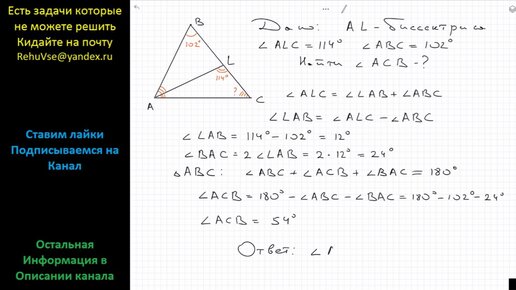 Есть задачи которые
не можете решить
Кидайте на почту
RehuVse@yandex.ru
Ставим лайки
Подписываемся на
Канал
Остальная
Информация в
Описании канала
B
102°
L
114°
?
A
C
Дано: AL - биссектриса
∠ALC = 114° ∠ABC = 102°
Найти ∠ACB - ?
∠ALC = ∠LAB + ∠ABC
∠LAB = ∠ALC - ∠ABC
∠LAB = 114° - 102° = 12°
∠BAC = 2∠LAB = 2 · 12° = 24°
△ABC: ∠ABC + ∠ACB + ∠BAC = 180°
∠ACB = 180° - ∠ABC - ∠BAC = 180° - 102° - 24°
∠ACB = 54°
Ответ: ∠